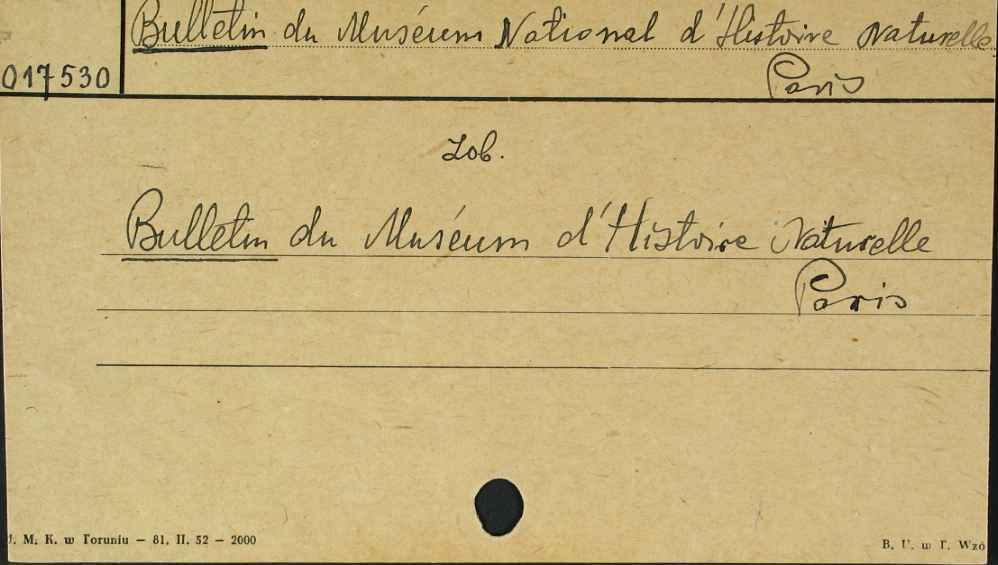 Bulletin du Muséum National d'Histoire Naturelle
017530
Paris
Zob.
Bulletin du Muséum d'Histoire Naturelle
Paris
M. K. w Toruniu – 81. II. 52 – 2000
B. U. w T. Wzó